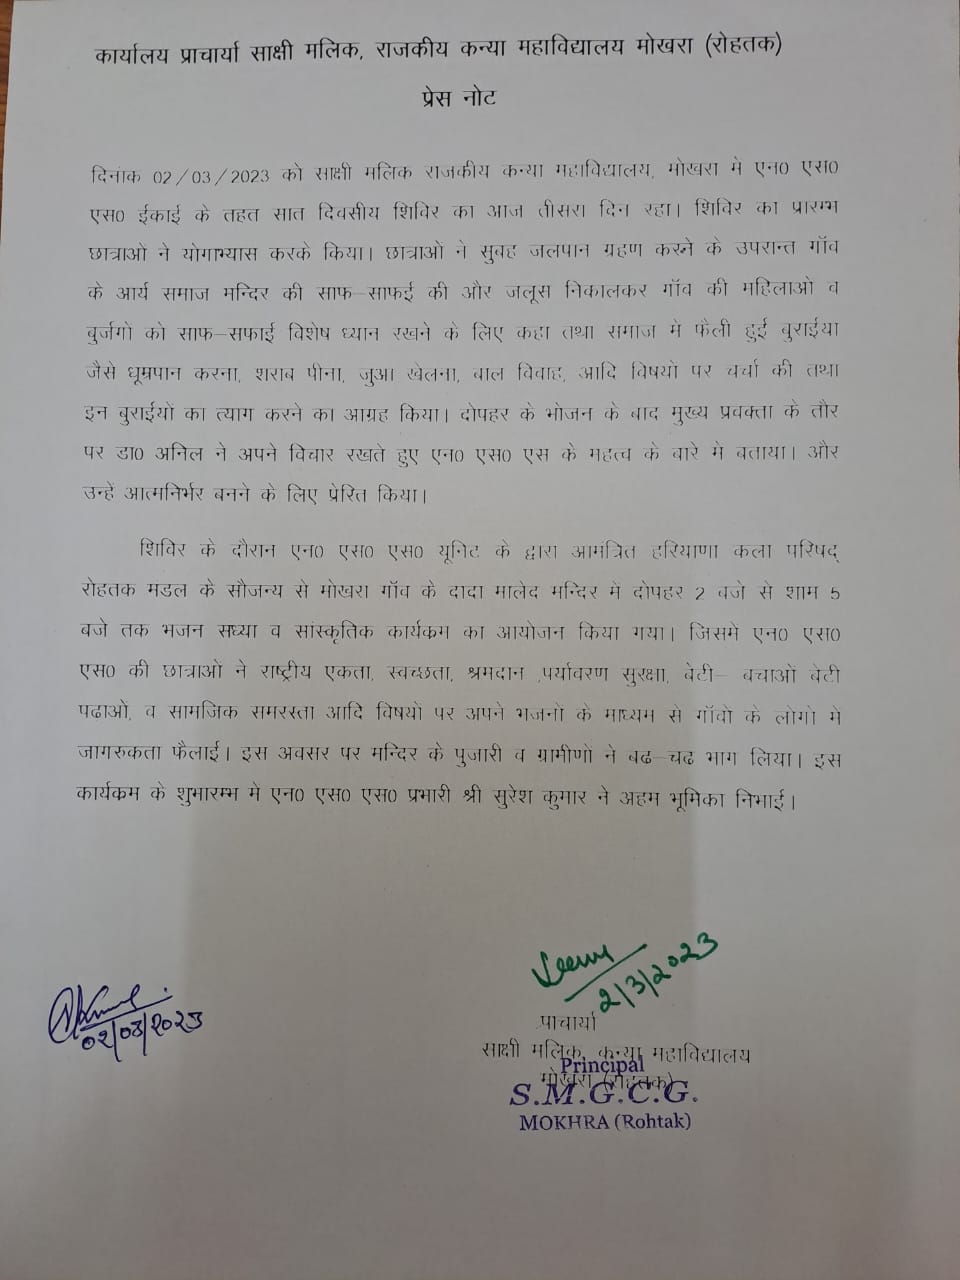 कार्यालय प्राचार्या साक्षी मलिक, राजकीय कन्या महाविद्यालय मोखरा (रोहतक)
प्रेस नोट
दिनाक 02/03/2023 को साक्षी मलिक राजकीय कन्या महाविद्यालय, मोखरा मे एन0 एस0
एस0 ईकाई के तहत सात दिवसीय शिविर का आज तीसरा दिन रहा। शिविर का प्रारम्भ
छात्राओं ने योगाभ्यास करके किया। छात्राओ ने सुवह जलपान ग्रहण करने के उपरान्त गॉव
के आर्य समाज मन्दिर की साफ-साफई की और जलूस निकालकर गॉव की महिलाओ व
बुर्जगो को साफ-सफाई विशेष ध्यान रखने के लिए कहा तथा समाज मे फैली हुई बुराईया
जैसे धूम्रपान करना, शराब पीना, जुआ खेलना, वाल विवाह, आदि विषयो पर चर्चा की तथा
इन बुराईयो का त्याग करने का आग्रह किया। दोपहर के भोजन के बाद मुख्य प्रवक्ता के तौर
पर डा0 अनिल ने अपने विचार रखते हुए एन0 एस0 एस के महत्व के बारे मे बताया। और
उन्हें आत्मनिर्भर बनने के लिए प्रेरित किया।
शिविर के दौरान एन0 एस0 एस0 यूनिट के द्वारा आमंत्रित हरियाणा कला परिषद्
रोहतक मडल के सौजन्य से मोखरा गॉव के दादा मालेद मन्दिर मे दोपहर 2 बजे से शाम 5
बजे तक भजन सध्या व सांस्कृतिक कार्यकम का आयोजन किया गया। जिसमे एन0 एस0
एस0 की छात्राओं ने राष्ट्रीय एकता, स्वच्छता, श्रमदान ,पर्यावरण सुरक्षा, बेटी- बचाओं बेटी
पढाओं, व सामजिक समरस्ता आदि विषयो पर अपने भजनो के माध्यम से गॉवो के लोगो मे
जागरुकता फैलाई। इस अवसर पर मन्दिर के पुजारी व ग्रामीणो ने बढ-चढ भाग लिया। इस
कार्यकम के शुभारम्भ मे एन0 एस0 एस0 प्रभारी श्री सुरेश कुमार ने अहम भूमिका निभाई।
2/3/2023
02/03/2023
प्राचार्या
साक्षी मलिक, कन्या महाविद्यालय
मोखरा (रोहतक)
Principal
S.M.G.C.G.
MOKHRA (Rohtak)